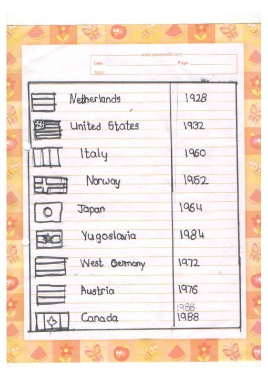 Date : Page :
Netherlands 1928
United States 1932
Italy 1960
Norway 1952
Japan 1964
Yugoslavia 1984
West Germany 1972
Austria 1976
1988
Canada 1988